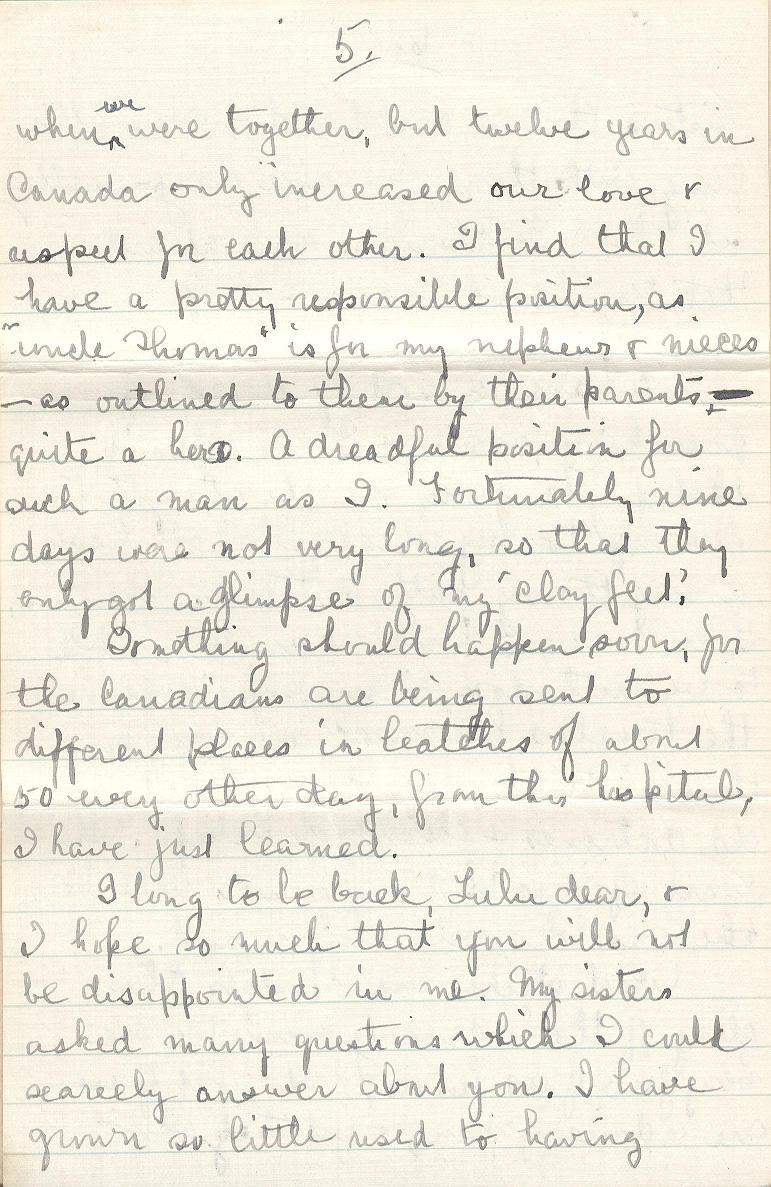 5.
when we were together, but twelve years in
Canada only increased our love &
respect for each other. I find that I
have a pretty responsible position, as
"uncle Thomas" is for my nephews & nieces
— as outlined to them by their parents, —
quite a hero. A dreadful position for
such a man as I. Fortunately nine
days were not very long, so that they
only got a glimpse of my "clay feet".
Something should happen soon, for
the Canadians are being sent to
different places in batches of about
50 every other day, from this hospital,
I have just learned.
I long to be back, Lulu dear, &
I hope so much that you will not
be disappointed in me. My sisters
asked many questions which I could
scarcely answer about you. I have
grown so little used to having